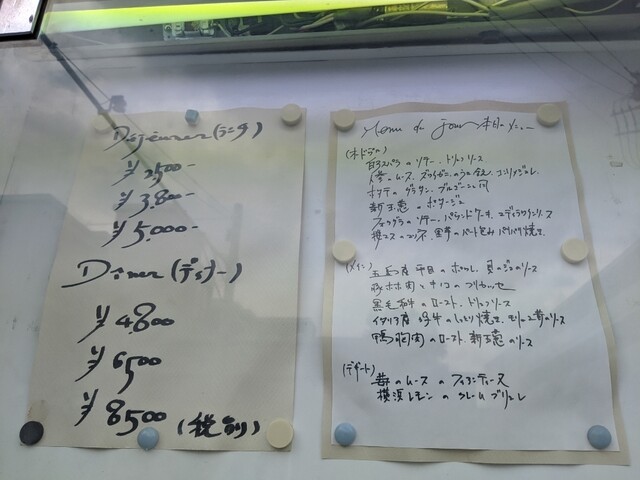 Déjeuner (ランチ)
¥2,500-
¥3,800-
¥5,000-
Dîner (ディナー)
¥4,800
¥6,500
¥8,500 (税別)
Menu du jour 本日のメニュー
(オードブル)
白アスパラのソテー、トリュフソース
のムース、
ホタテのグラタン、ブルゴーニュ風
新玉葱のポタージュ
フォアグラのソテー、パウンドケーキ、マディラワインソース
(メイン)
五島産 平目のポワレ、貝のジュのソース
豚ホホ肉とキノコのフリカッセ
黒毛和牛のロースト、トリュフソース
イタリア産 仔牛のしっとり焼き、モリーユ茸のソース
鴨胸肉のロースト、新玉葱のソース
(デザート)
苺のムースのフィヤンティーヌ
横浜レモンのクレームブリュレ